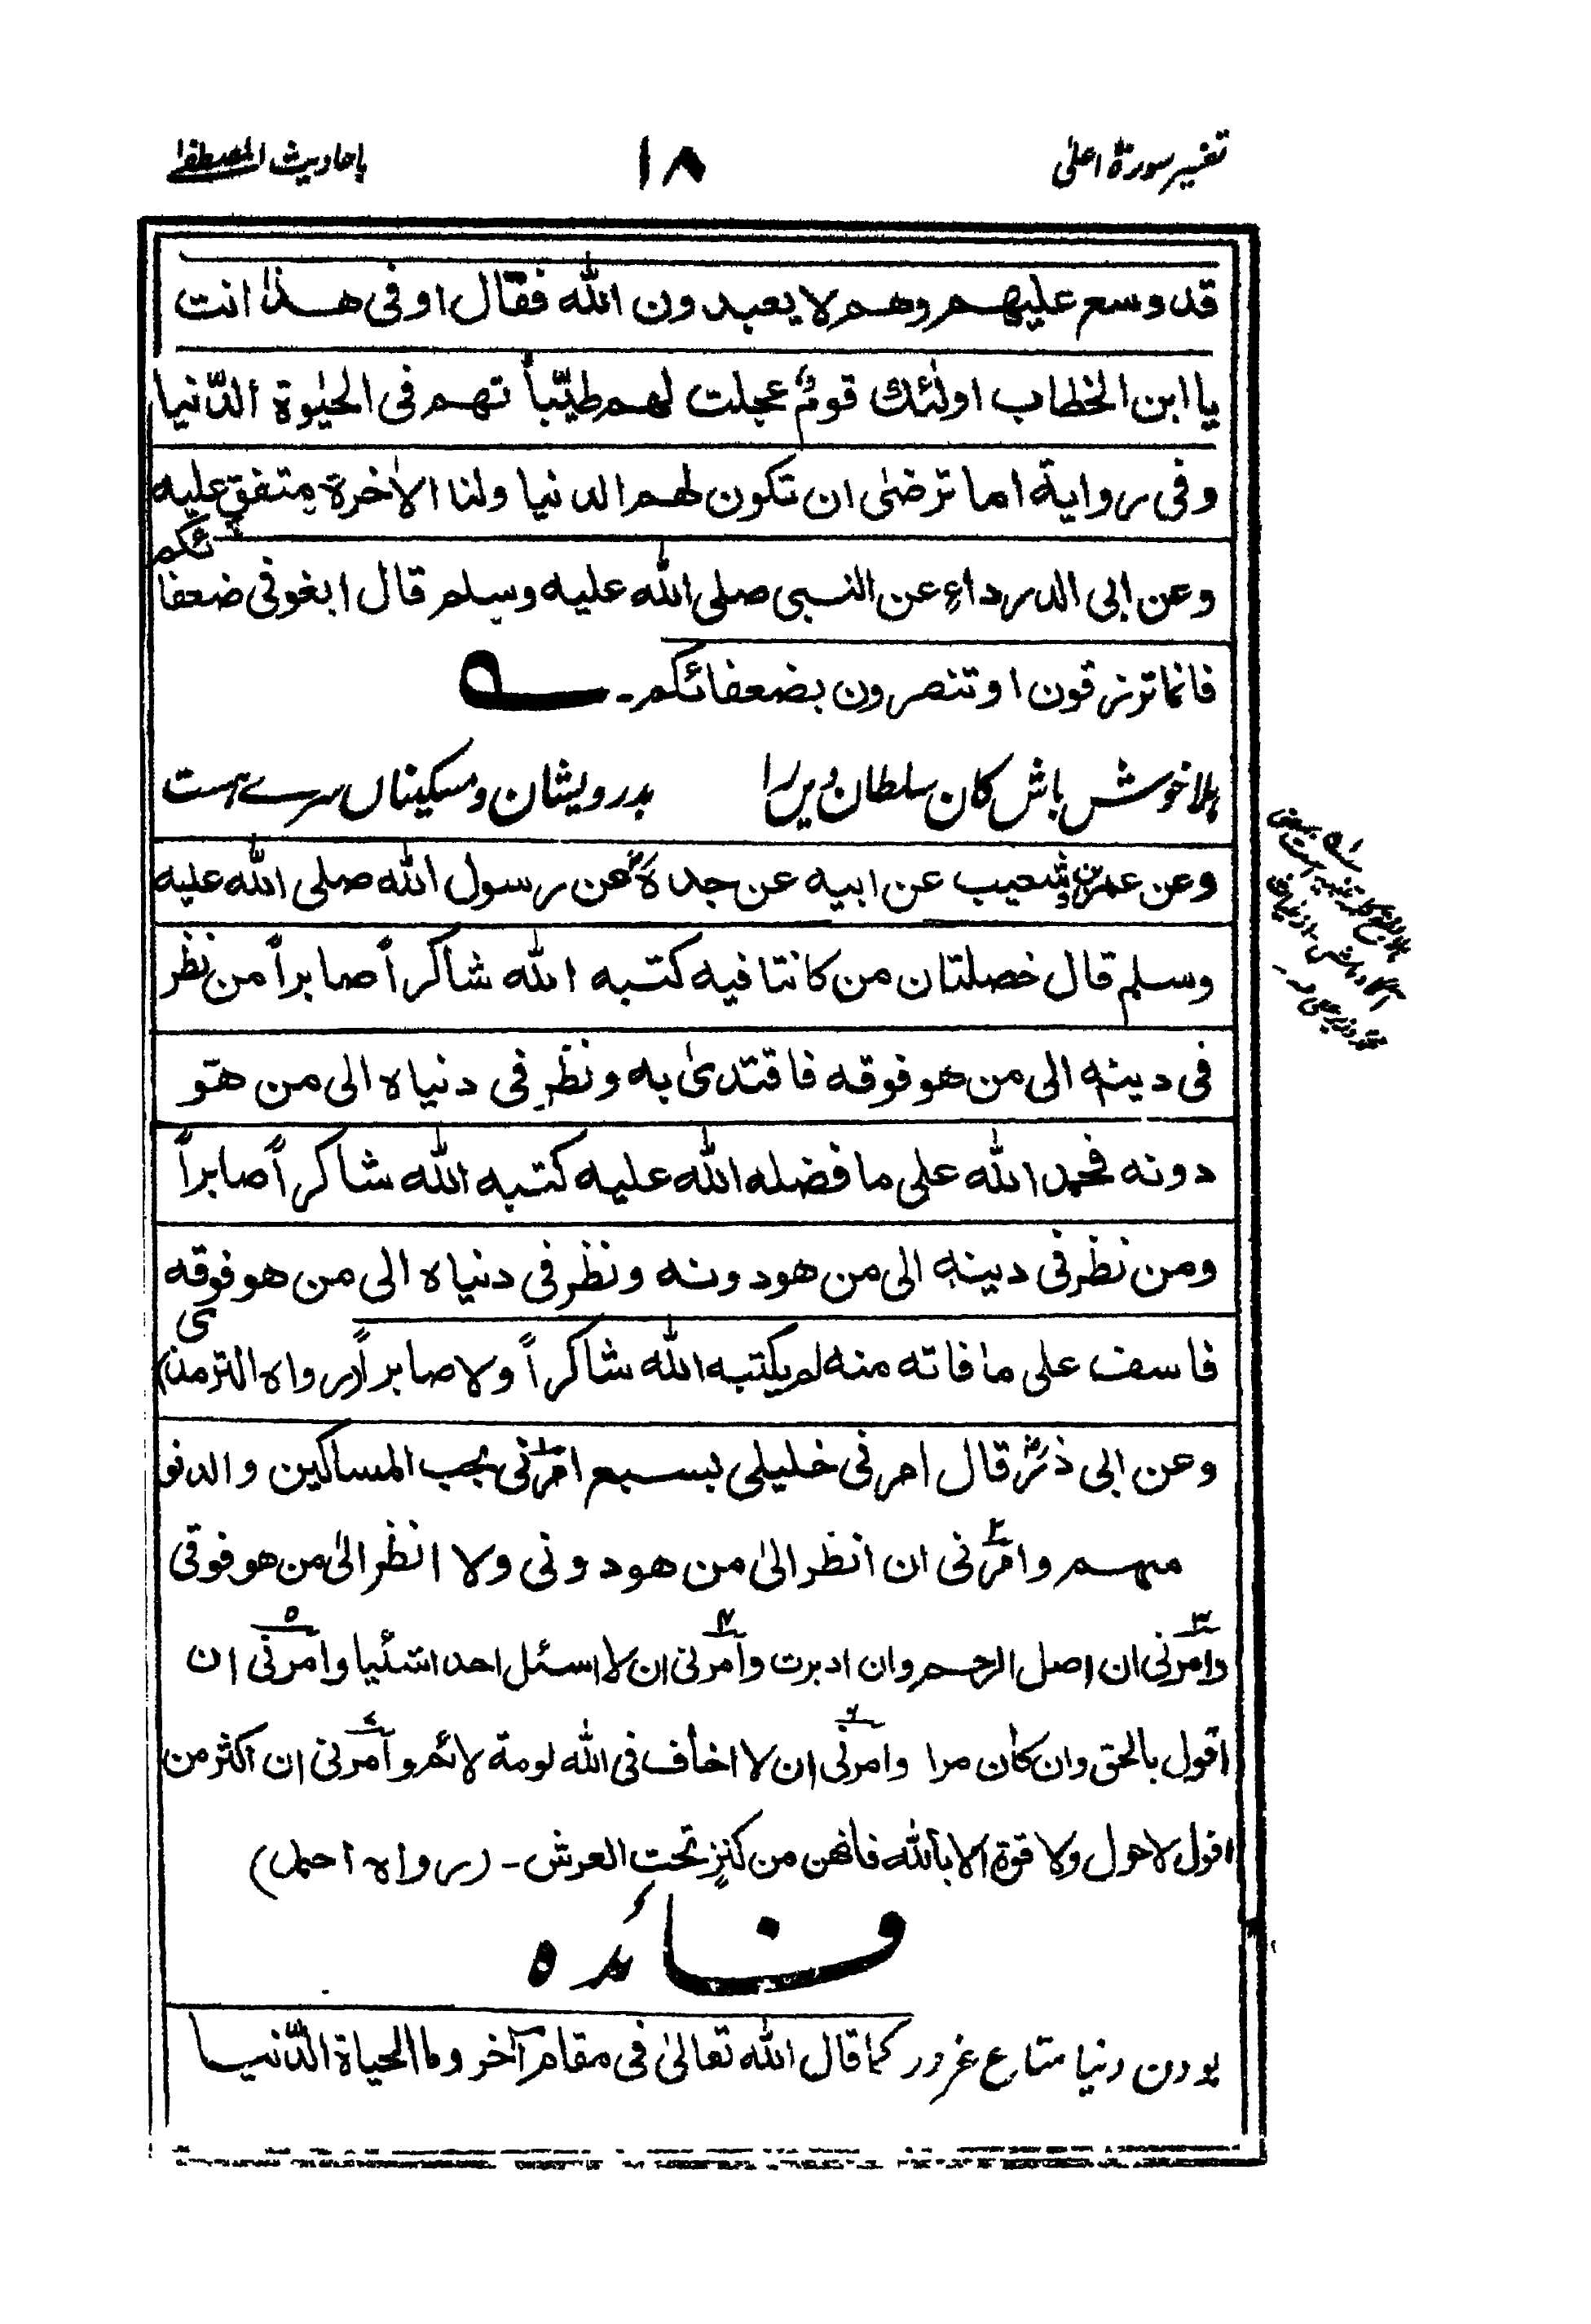 تفسیر سورۃ اعلیٰ
۱۸
باحادیث المصطفےٰ
قد وسع علیہم وھم لا یعبدون اللہ فقال او فی ھذا انت
یا ابن الخطاب اولٰئک قومٌ عجلت لھم طیّباتھم فی الحیٰوۃ الدّنیا
وفی روایۃ اما ترضیٰ ان تکون لھم الدنیا ولنا الاٰخرۃ متفق علیہ
وعن ابی الدرداءِ عن النبی صلی اللہ علیہ وسلم قال ابغونی ضعفائکم
فانما ترزقون او تنصرون بضعفائکم۔ ؎
ہلا خوش باش کان سلطان دیں را بدرویشان ومسکیناں سرے ہست
وعن عمرو بن شعیب عن ابیہ عن جدہٖ عن رسول اللہ صلی اللہ علیہ
وسلم قال خصلتان من کانتا فیہ کتبہ اللہ شاکراً صابراً من نظر
فی دینہٖ الی من ھو فوقہ فاقتدیٰ بہ ونظر فی دنیاہ الی من ھو
دونہ فحمد اللہ علی ما فضلہ اللہ علیہ کتبہ اللہ شاکراً صابراً
ومن نظر فی دینہٖ الی من ھو دونہ ونظر فی دنیاہ الی من ھو فوقہ
فاسف علی ما فاتہ منہ لم یکتبہ اللہ شاکراً ولا صابراً (رواہ الترمذی)
وعن ابی ذرؓ قال امرنی خلیلی بسبع امرنی بحب المساکین والدنو
منہم وامرنی ان انظر الیٰ من ھو دونی ولا انظر الیٰ من ھو فوقی
وامرنی ان اصل الرحم وان ادبرت وامرنی ان لا اسئل احدا شیئا وامرنی ان
اقول بالحق وان کان مرا وامرنی ان لا اخاف فی اللہ لومۃ لائم وامرنی ان اکثر من
اقول لا حول ولا قوۃ الا باللہ فانھن من کنزٍ تحت العرش۔ (رواہ احمد)
فائدہ
بودن دنیا متاع غرور کما قال اللہ تعالیٰ فی مقام آخر وما الحیاۃ الدّنیا